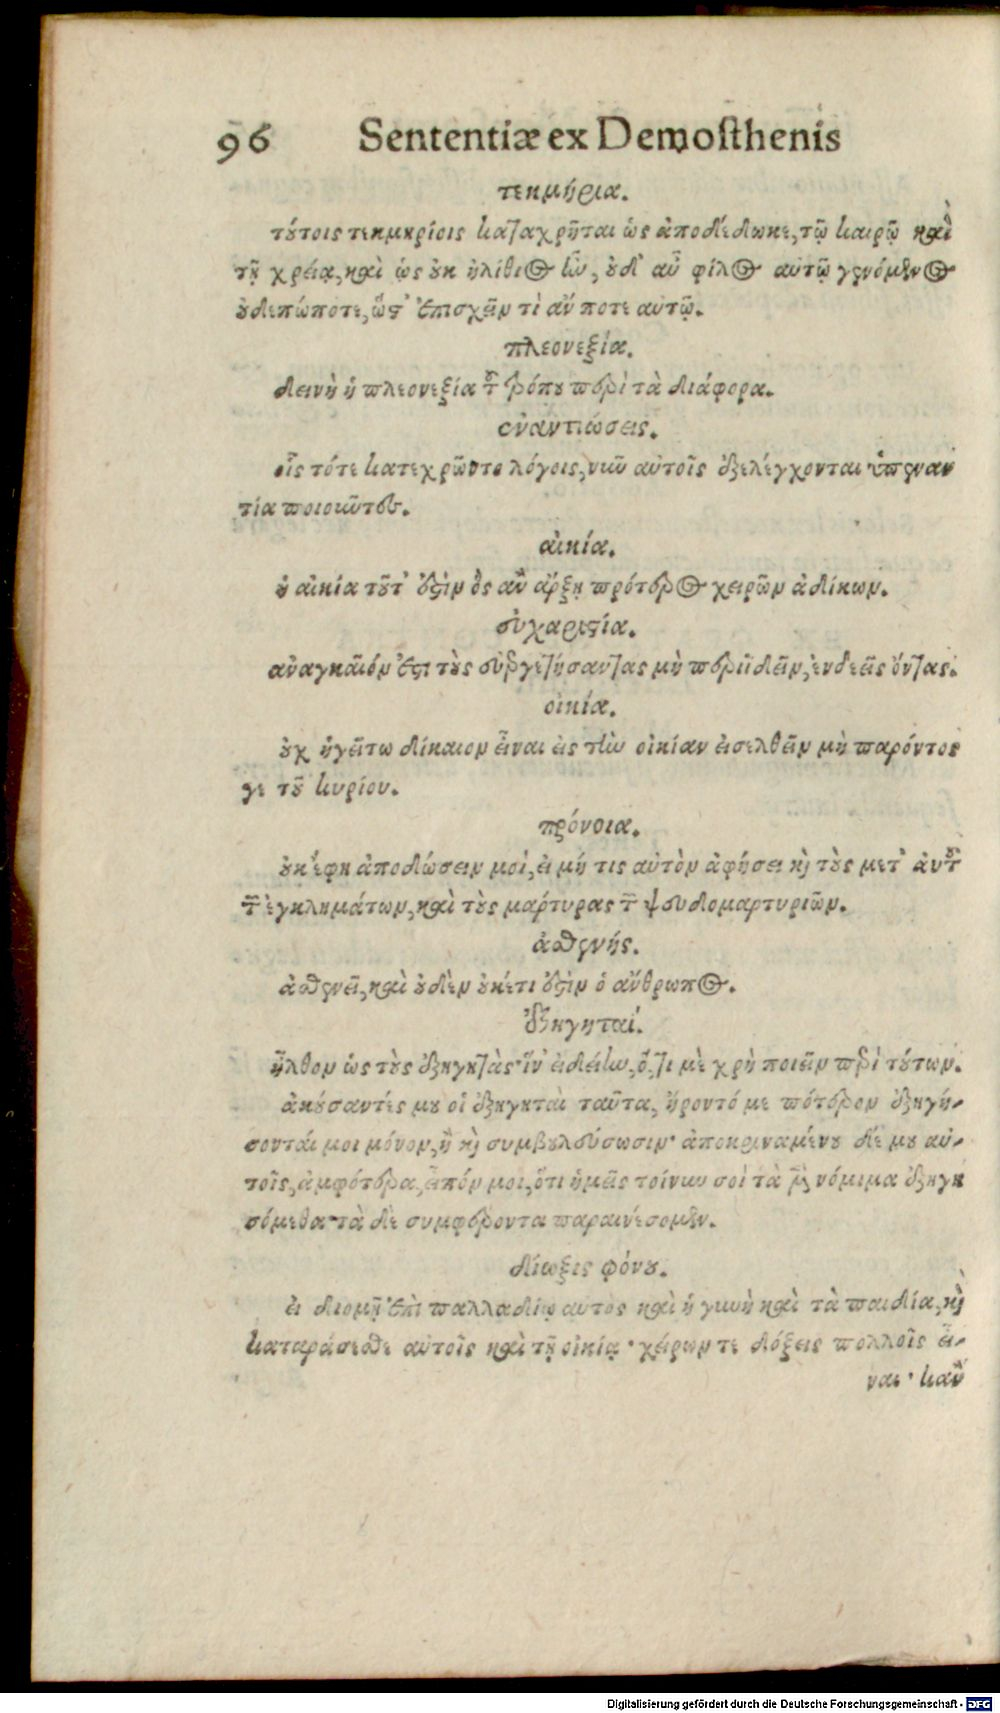 96 Sententiæ ex Demosthenis
τεκμήρια.
τούτοις τεκμηρίοις καταχρῆται ὡς ἀποδέδωκε, τῷ καιρῷ καὶ
τῇ χρείᾳ, καὶ ὡς οὐκ ἠλίθιος ἦν, οὐδ' αὖ φίλος αὐτῷ γενόμενος
οὐδεπώποτε, ὥστ' ἐπισχεῖν τὶ ἄν ποτε αὐτῷ.
πλεονεξία.
δεινὴ ἡ πλεονεξία τοῦ τρόπου περὶ τὰ διάφορα.
ἐναντιώσεις.
οἷς τότε κατεχρῶντο λόγοις, νῦν αὐτοῖς ἐξελέγχονται ὑπεναν
τία ποιοῦντες.
αἰκία.
ἡ αἰκία τοῦτ' ἐστὶν ὃς ἂν ἄρξῃ πρότερος χειρῶν ἀδίκων.
εὐχαριστία.
ἀναγκαῖόν ἐστι τοὺς εὐεργετήσαντας μὴ περιϊδεῖν, ἐνδεεῖς ὄντας.
οἰκία.
οὐχ ἡγεῖτο δίκαιον εἶναι εἰς τὴν οἰκίαν εἰσελθεῖν μὴ παρόντος
γε τοῦ κυρίου.
πρόνοια.
οὐκ ἔφη ἀποδώσειν μοί, εἰ μή τις αὐτὸν ἀφήσει καὶ τοὺς μετ' αὐτοῦ
τῶν ἐγκλημάτων, καὶ τοὺς μάρτυρας τῶν ψευδομαρτυριῶν.
ἀσθενής.
ἀσθενεῖ, καὶ οὐδὲν οὐκέτι ἐστὶν ὁ ἄνθρωπος.
ἐξηγηταί.
ἦλθον ὡς τοὺς ἐξηγητὰς· ἵν' εἰδείην, ὅ, τι μὲ χρὴ ποιεῖν περὶ τούτων.
ἀκούσαντές μου οἱ ἐξηγηταὶ ταῦτα, ἤροντό με πότερον ἐξηγή-
σονταί μοι μόνον, ἢ καὶ συμβουλεύσωσιν· ἀποκριναμένου δέ μου αὐ-
τοῖς, ἀμφότερα, εἶπόν μοι, ὅτι ἡμεῖς τοίνυν σοὶ τὰ μὲν νόμιμα ἐξηγη
σόμεθα· τὰ δὲ συμφέροντα παραινέσομεν.
δίωξις φόνου.
εἰ διομῇ ἐπὶ παλλαδίῳ αυτος καὶ ἡ γυνὴ καὶ τὰ παιδία, καὶ
καταράσεσθε αὐτοῖς καὶ τῇ οἰκίᾳ· χείρων τε δόξεις πολλοῖς εἶ-
ναι· κἂν
Digitalisierung gefördert durch die Deutsche Forschungsgemeinschaft - DFG